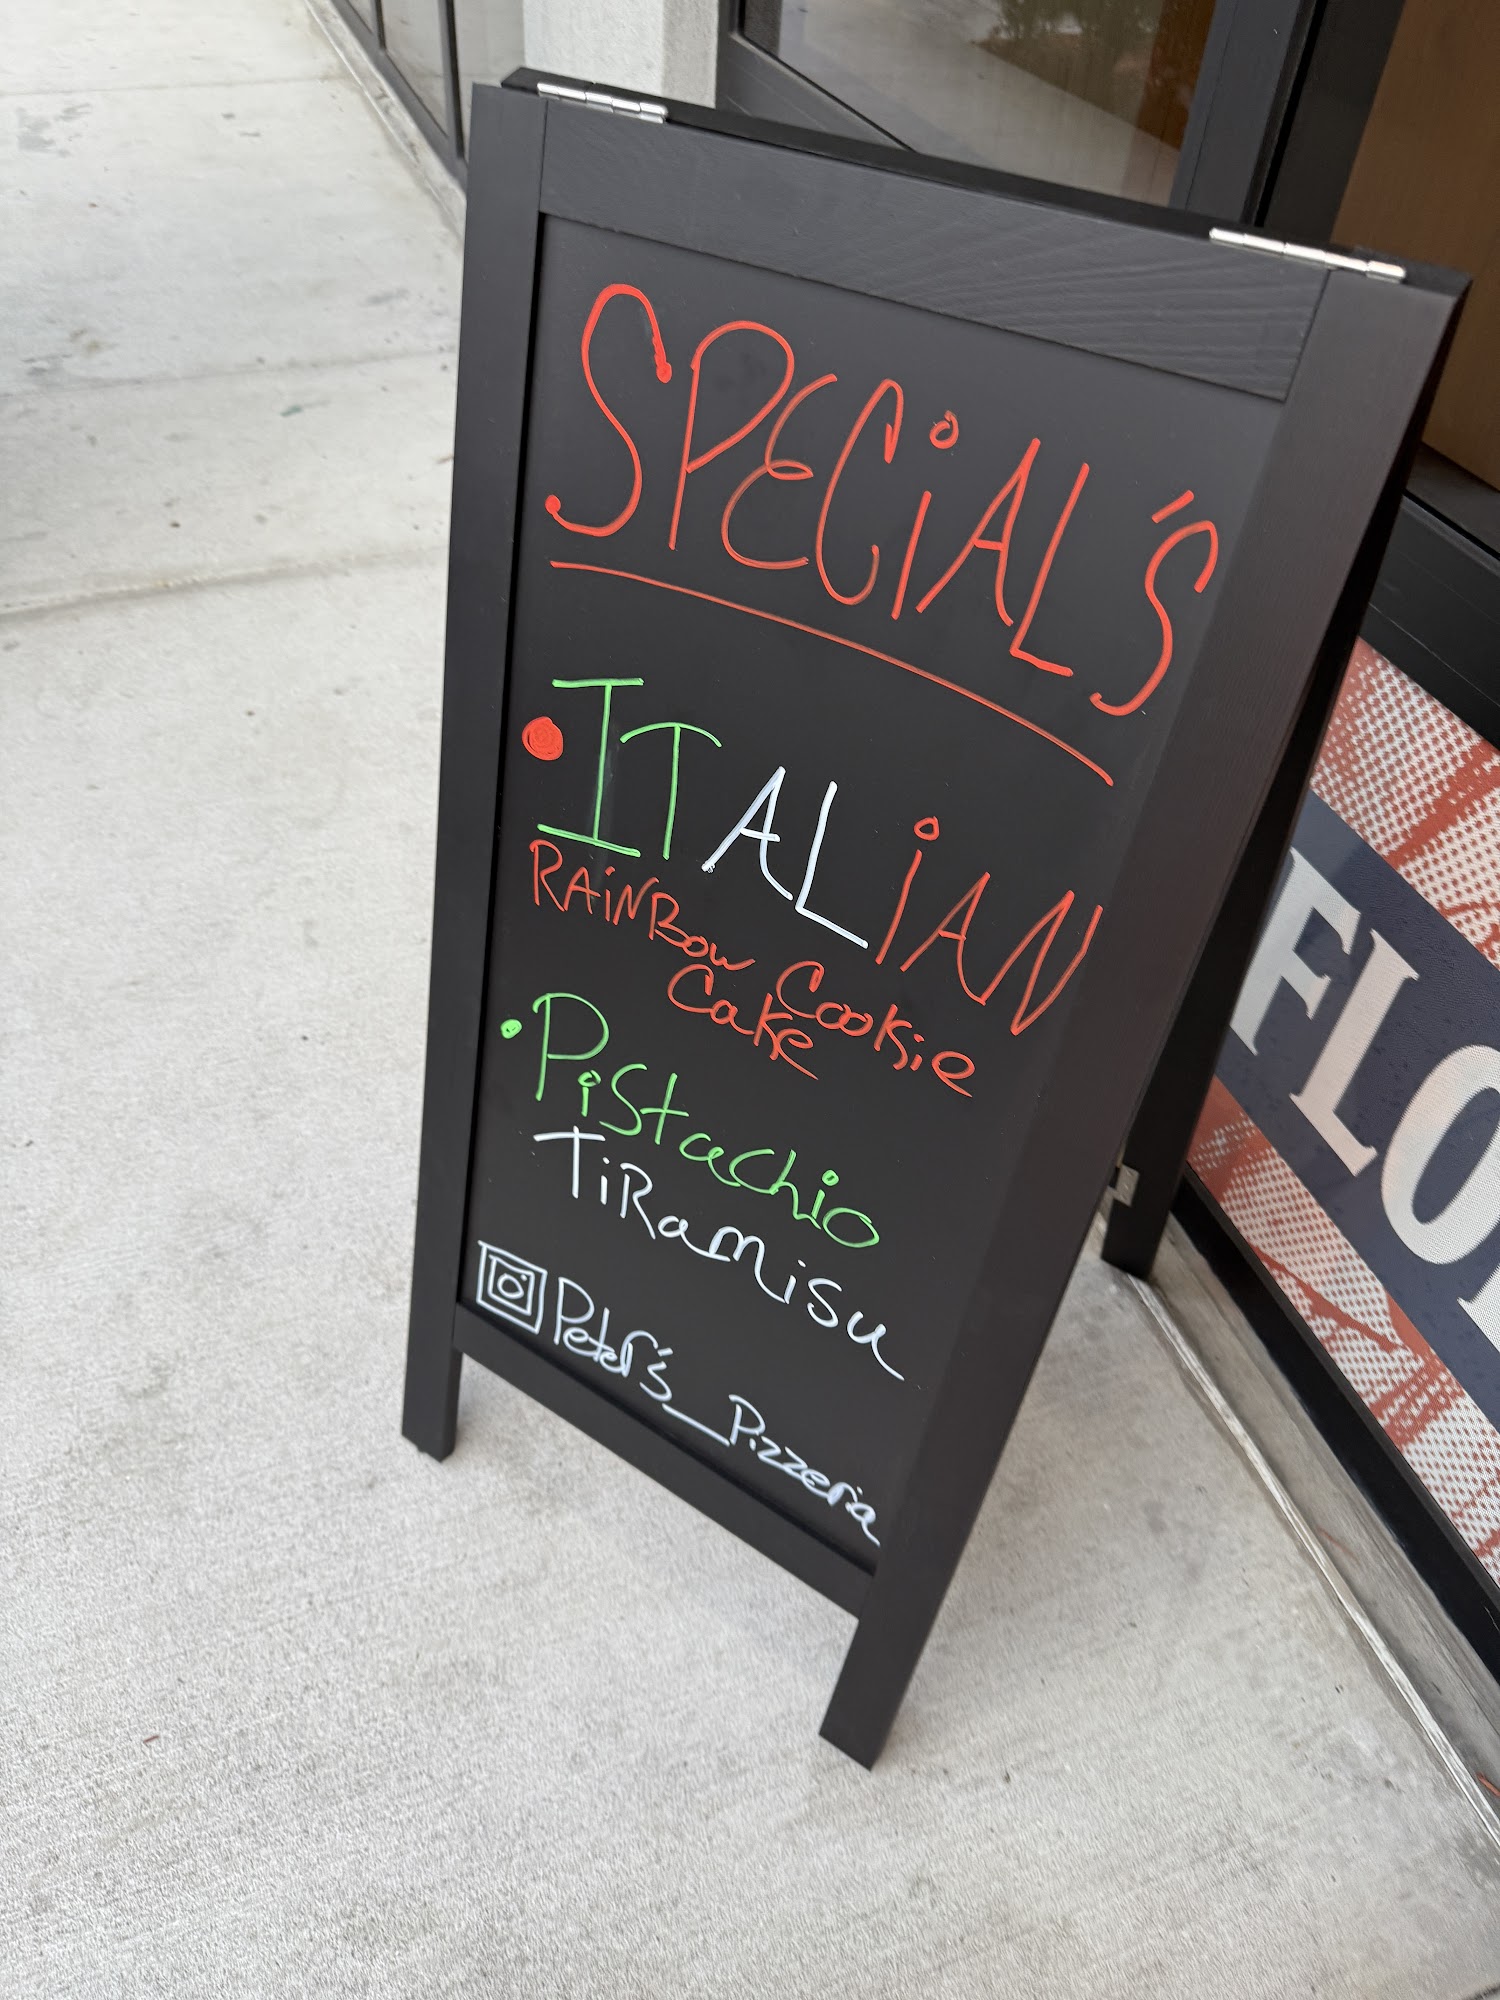 SPECiAL'S
• ITALiAN
RAiNBow Cookie
Cake
• PiStachio
TiRamisu
Peter's_Pizzeria